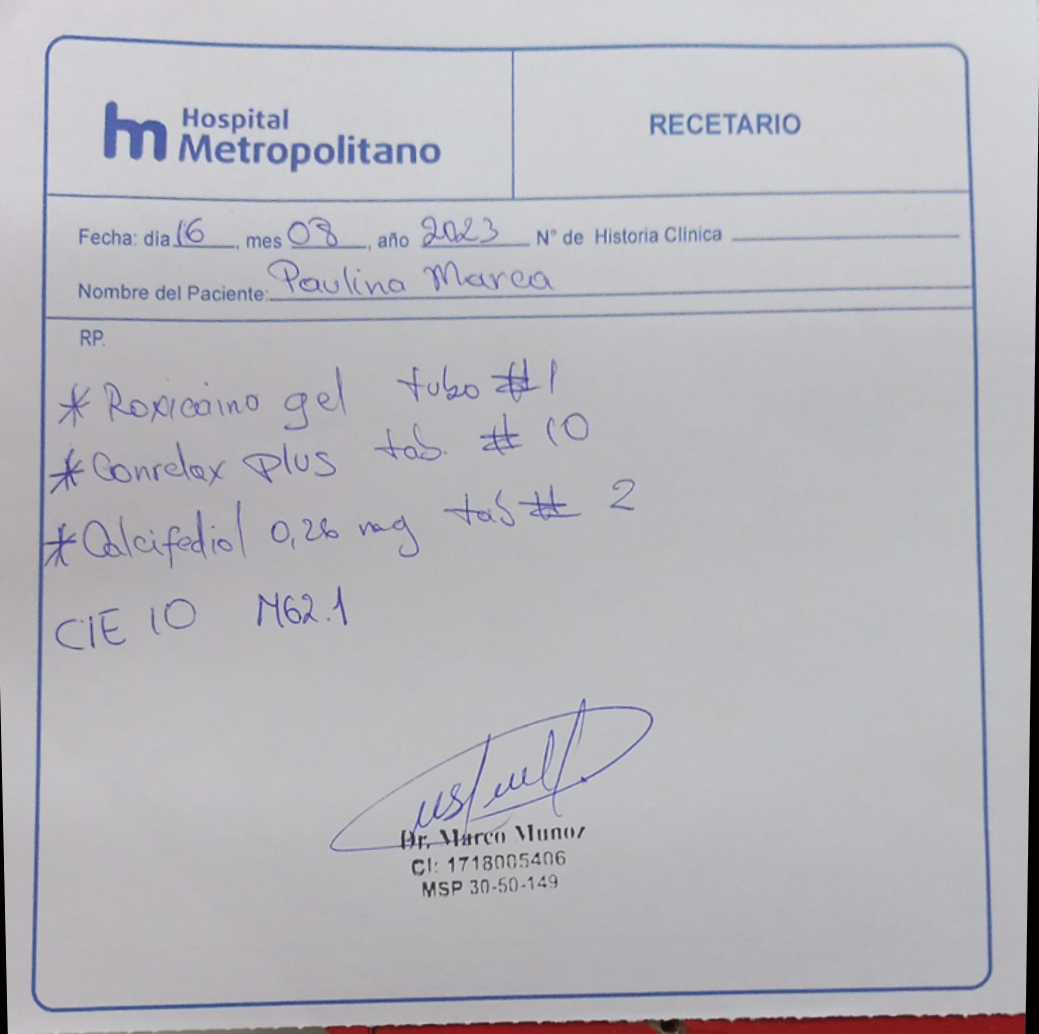 hm Hospital Metropolitano
RECETARIO
Fecha: dia 16, mes 08, año 2023 N° de Historia Clínica
Nombre del Paciente: Paulina Marca
RP.
* Roxicaino gel tubo #1
* Conrelax Plus tab. # 10
* Calcifediol 0,26 mg tab # 2
CIE 10 M62.1
Dr. Marco Munoz
CI: 1718005406
MSP 30-50-149